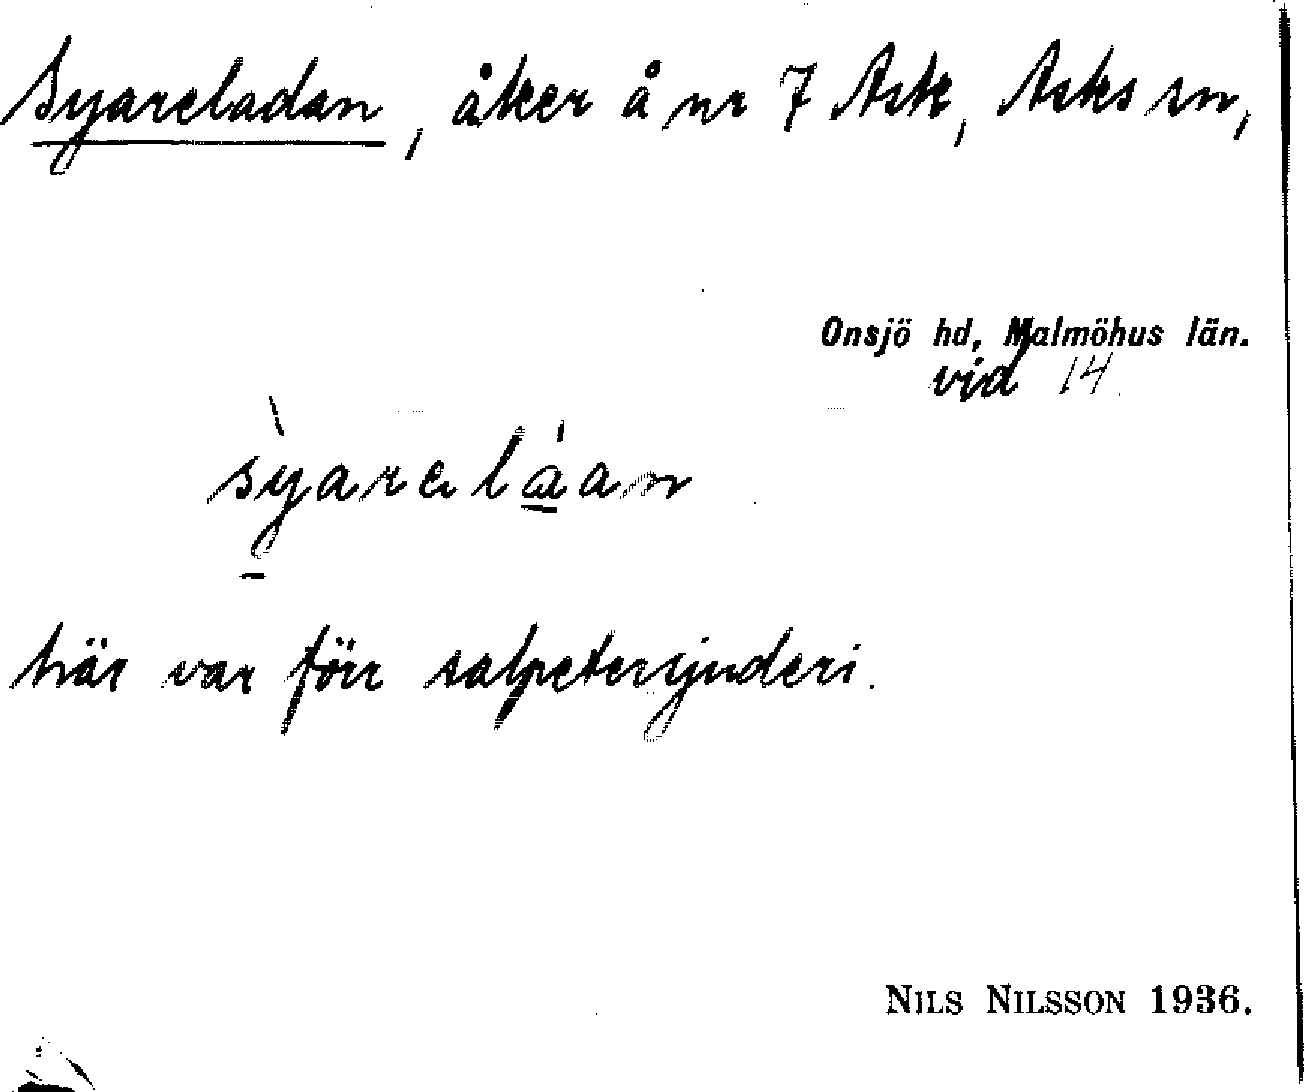 Syareladan, åker å nr 7 Ask, Asks sn,
Onsjö hd, Malmöhus län.
vid 14
sỳareláan
här var förr salpetersjuderi.
NILS NILSSON 1936.